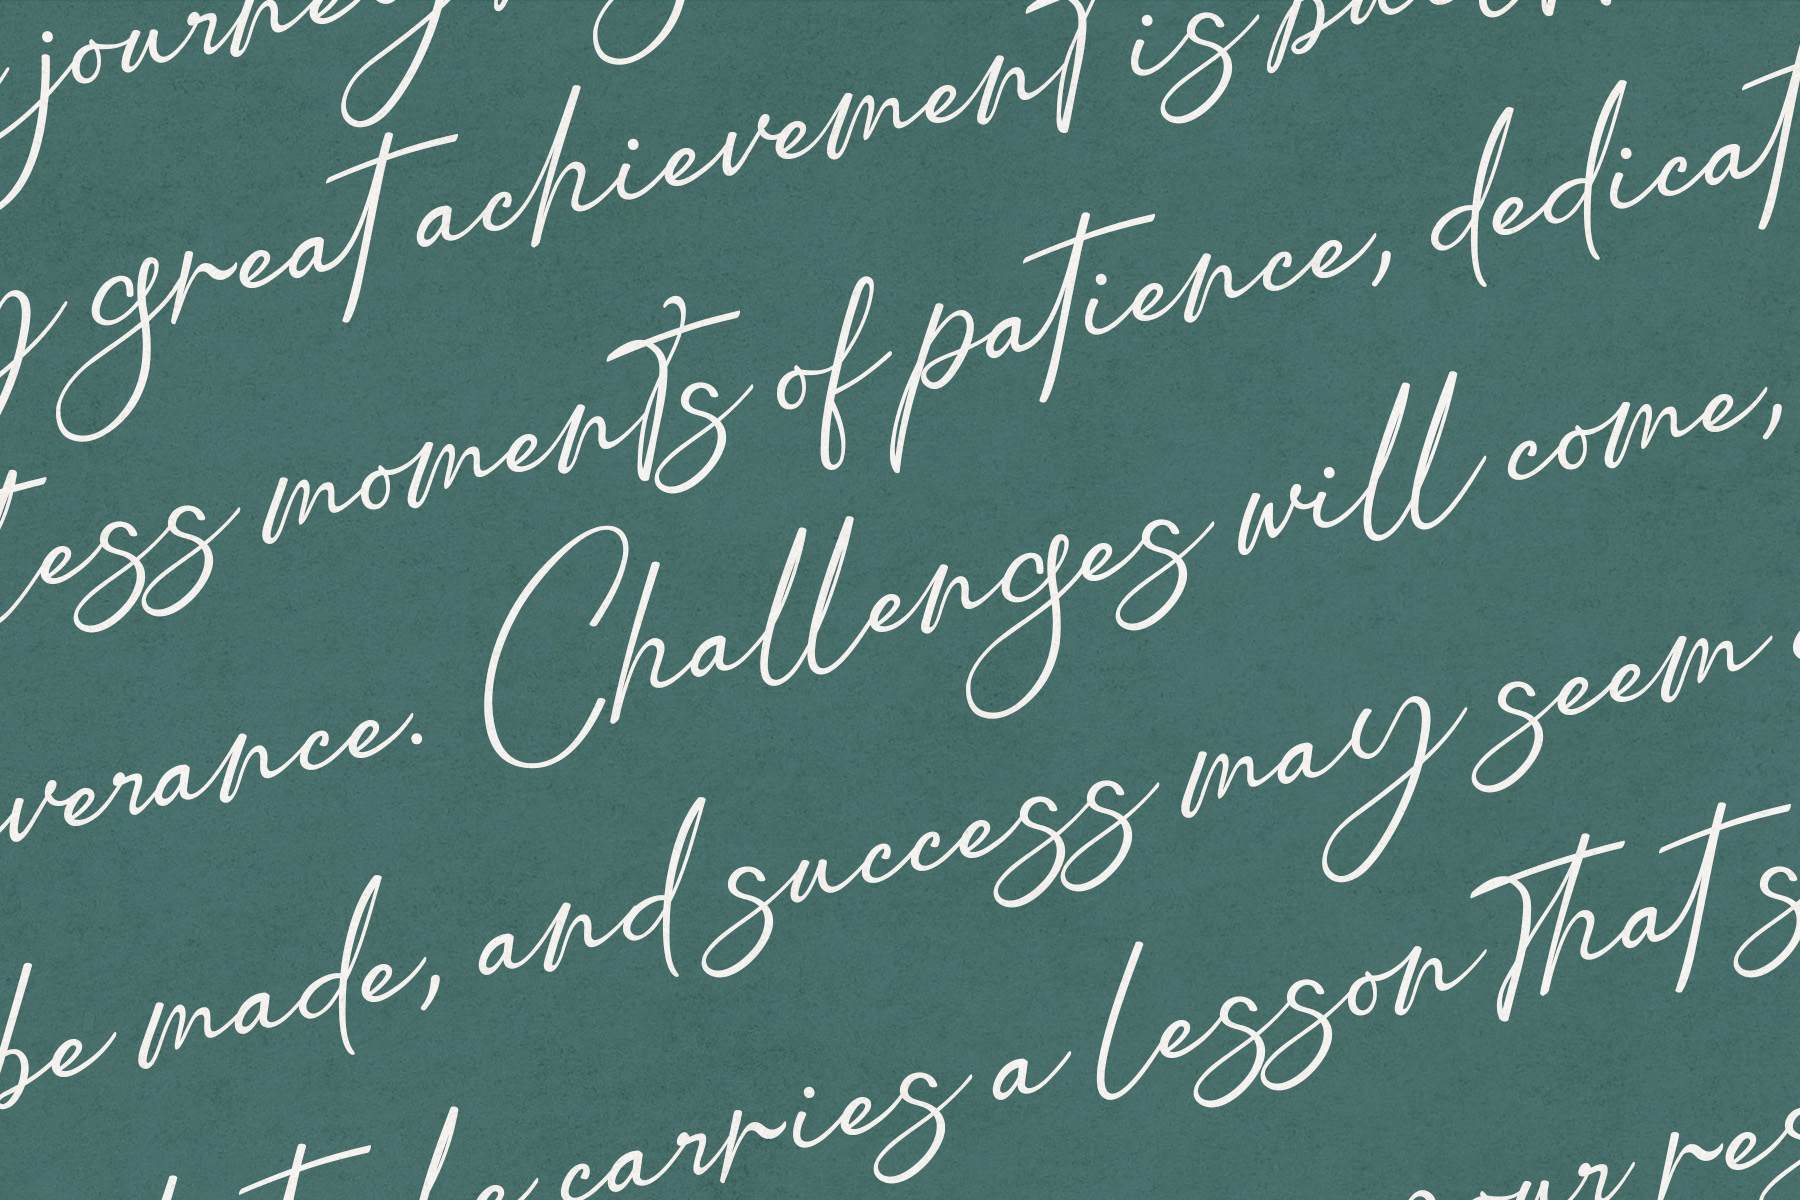 journey
great achievement is
ess moments of patience, dedicat
verance. Challenges will come,
be made, and success may seem
carries a lesson that s
our res